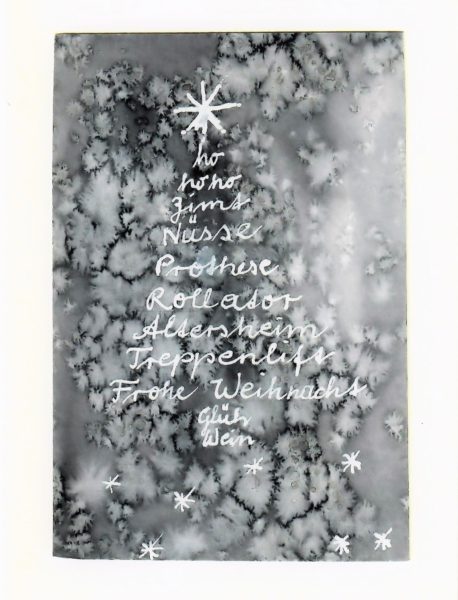 ho
ho ho
Zimt
Nüsse
Prothese
Rollator
Altersheim
Treppenlift
Frohe Weihnacht
Glüh
Wein